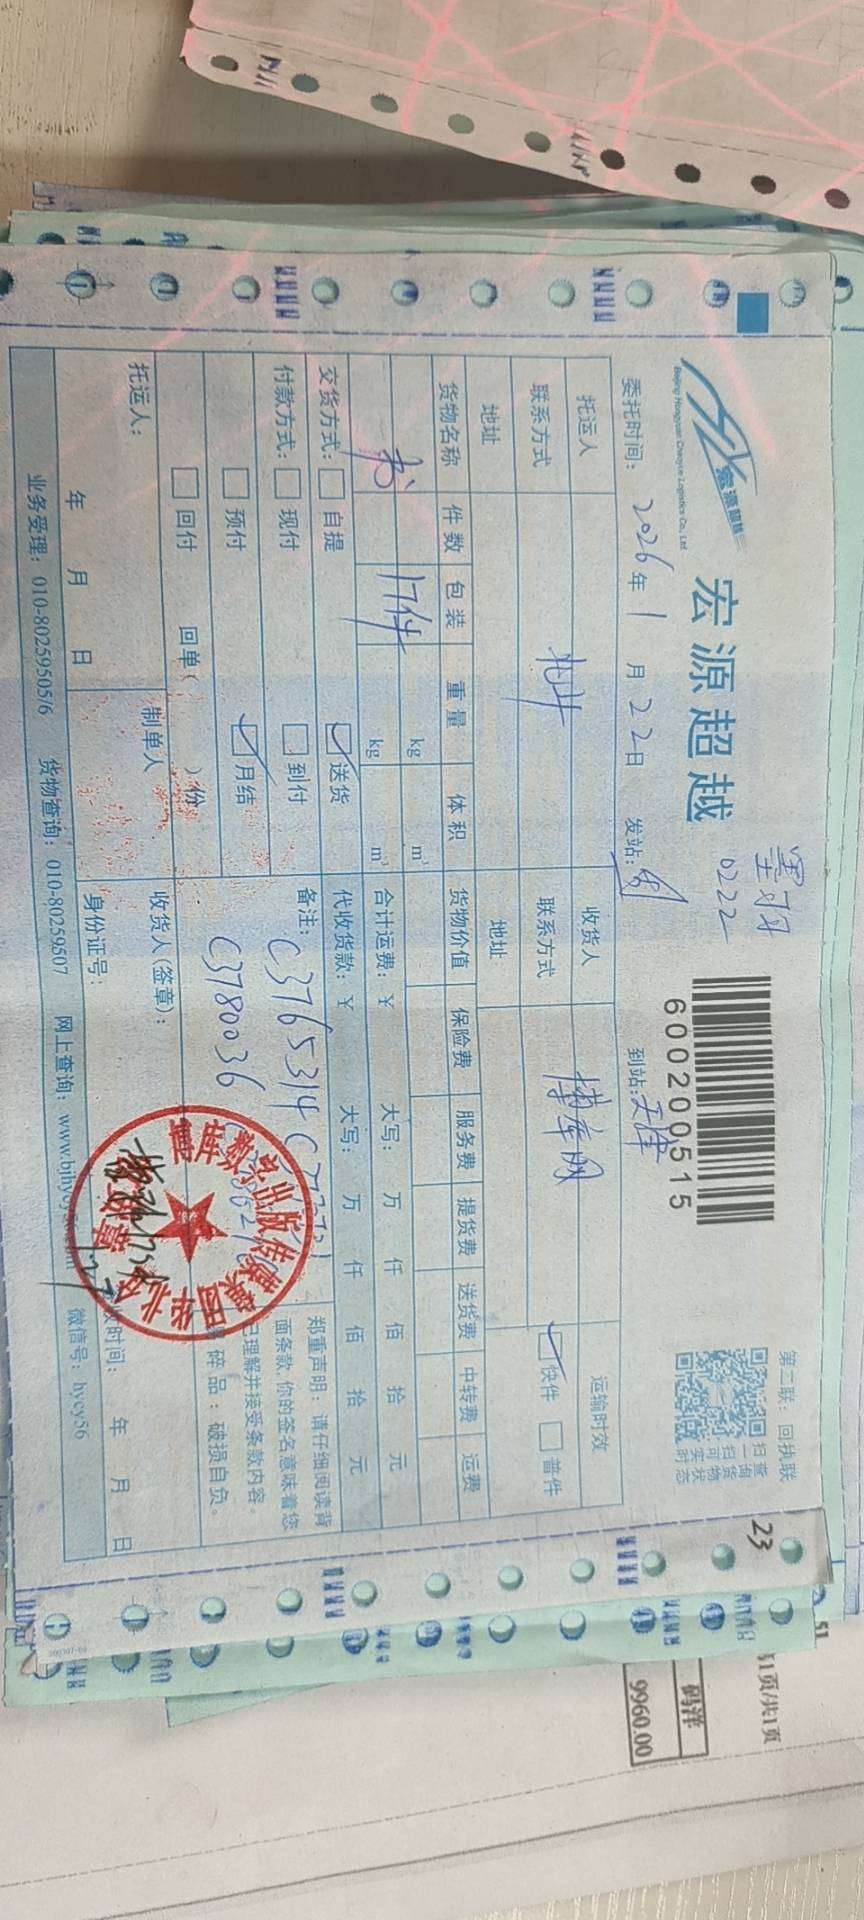 宏源超越
Beijing Hongyuan Chaoyue Logistics Co., Ltd
宏源超越
0222
600200515
第二联：回执联
扫一扫
查询货物实时状态
委托时间：2026年1月22日 发站： 到站：天津
托运人 收货人 博库网 运输时效
联系方式 联系方式 快件 普件
地址 地址
货物名称 件数 包装 重量 体积 货物价值 保险费 服务费 提货费 送货费 中转费 运费
书 17件 kg m³
kg m³
合计运费：¥ 大写： 万 仟 佰 拾 元
交货方式： 自提 送货 代收货款：¥ 大写： 万 仟 佰 拾 元
付款方式： 现付 到付
预付 月结
回付 回单（ ）份
备注：C3765314
C3780036
郑重声明：请仔细阅读背
面条款，你的签名意味着您
已理解并接受条款内容。
碎品：破损自负。
托运人： 制单人 收货人(签章)：
年 月 日 身份证号： 收时间： 年 月 日
业务受理：010-80259505/6 货物查询：010-80259507 网上查询：www.bjhycy 微信号：hycy56
23
51
页/共1页
码洋
9960.00